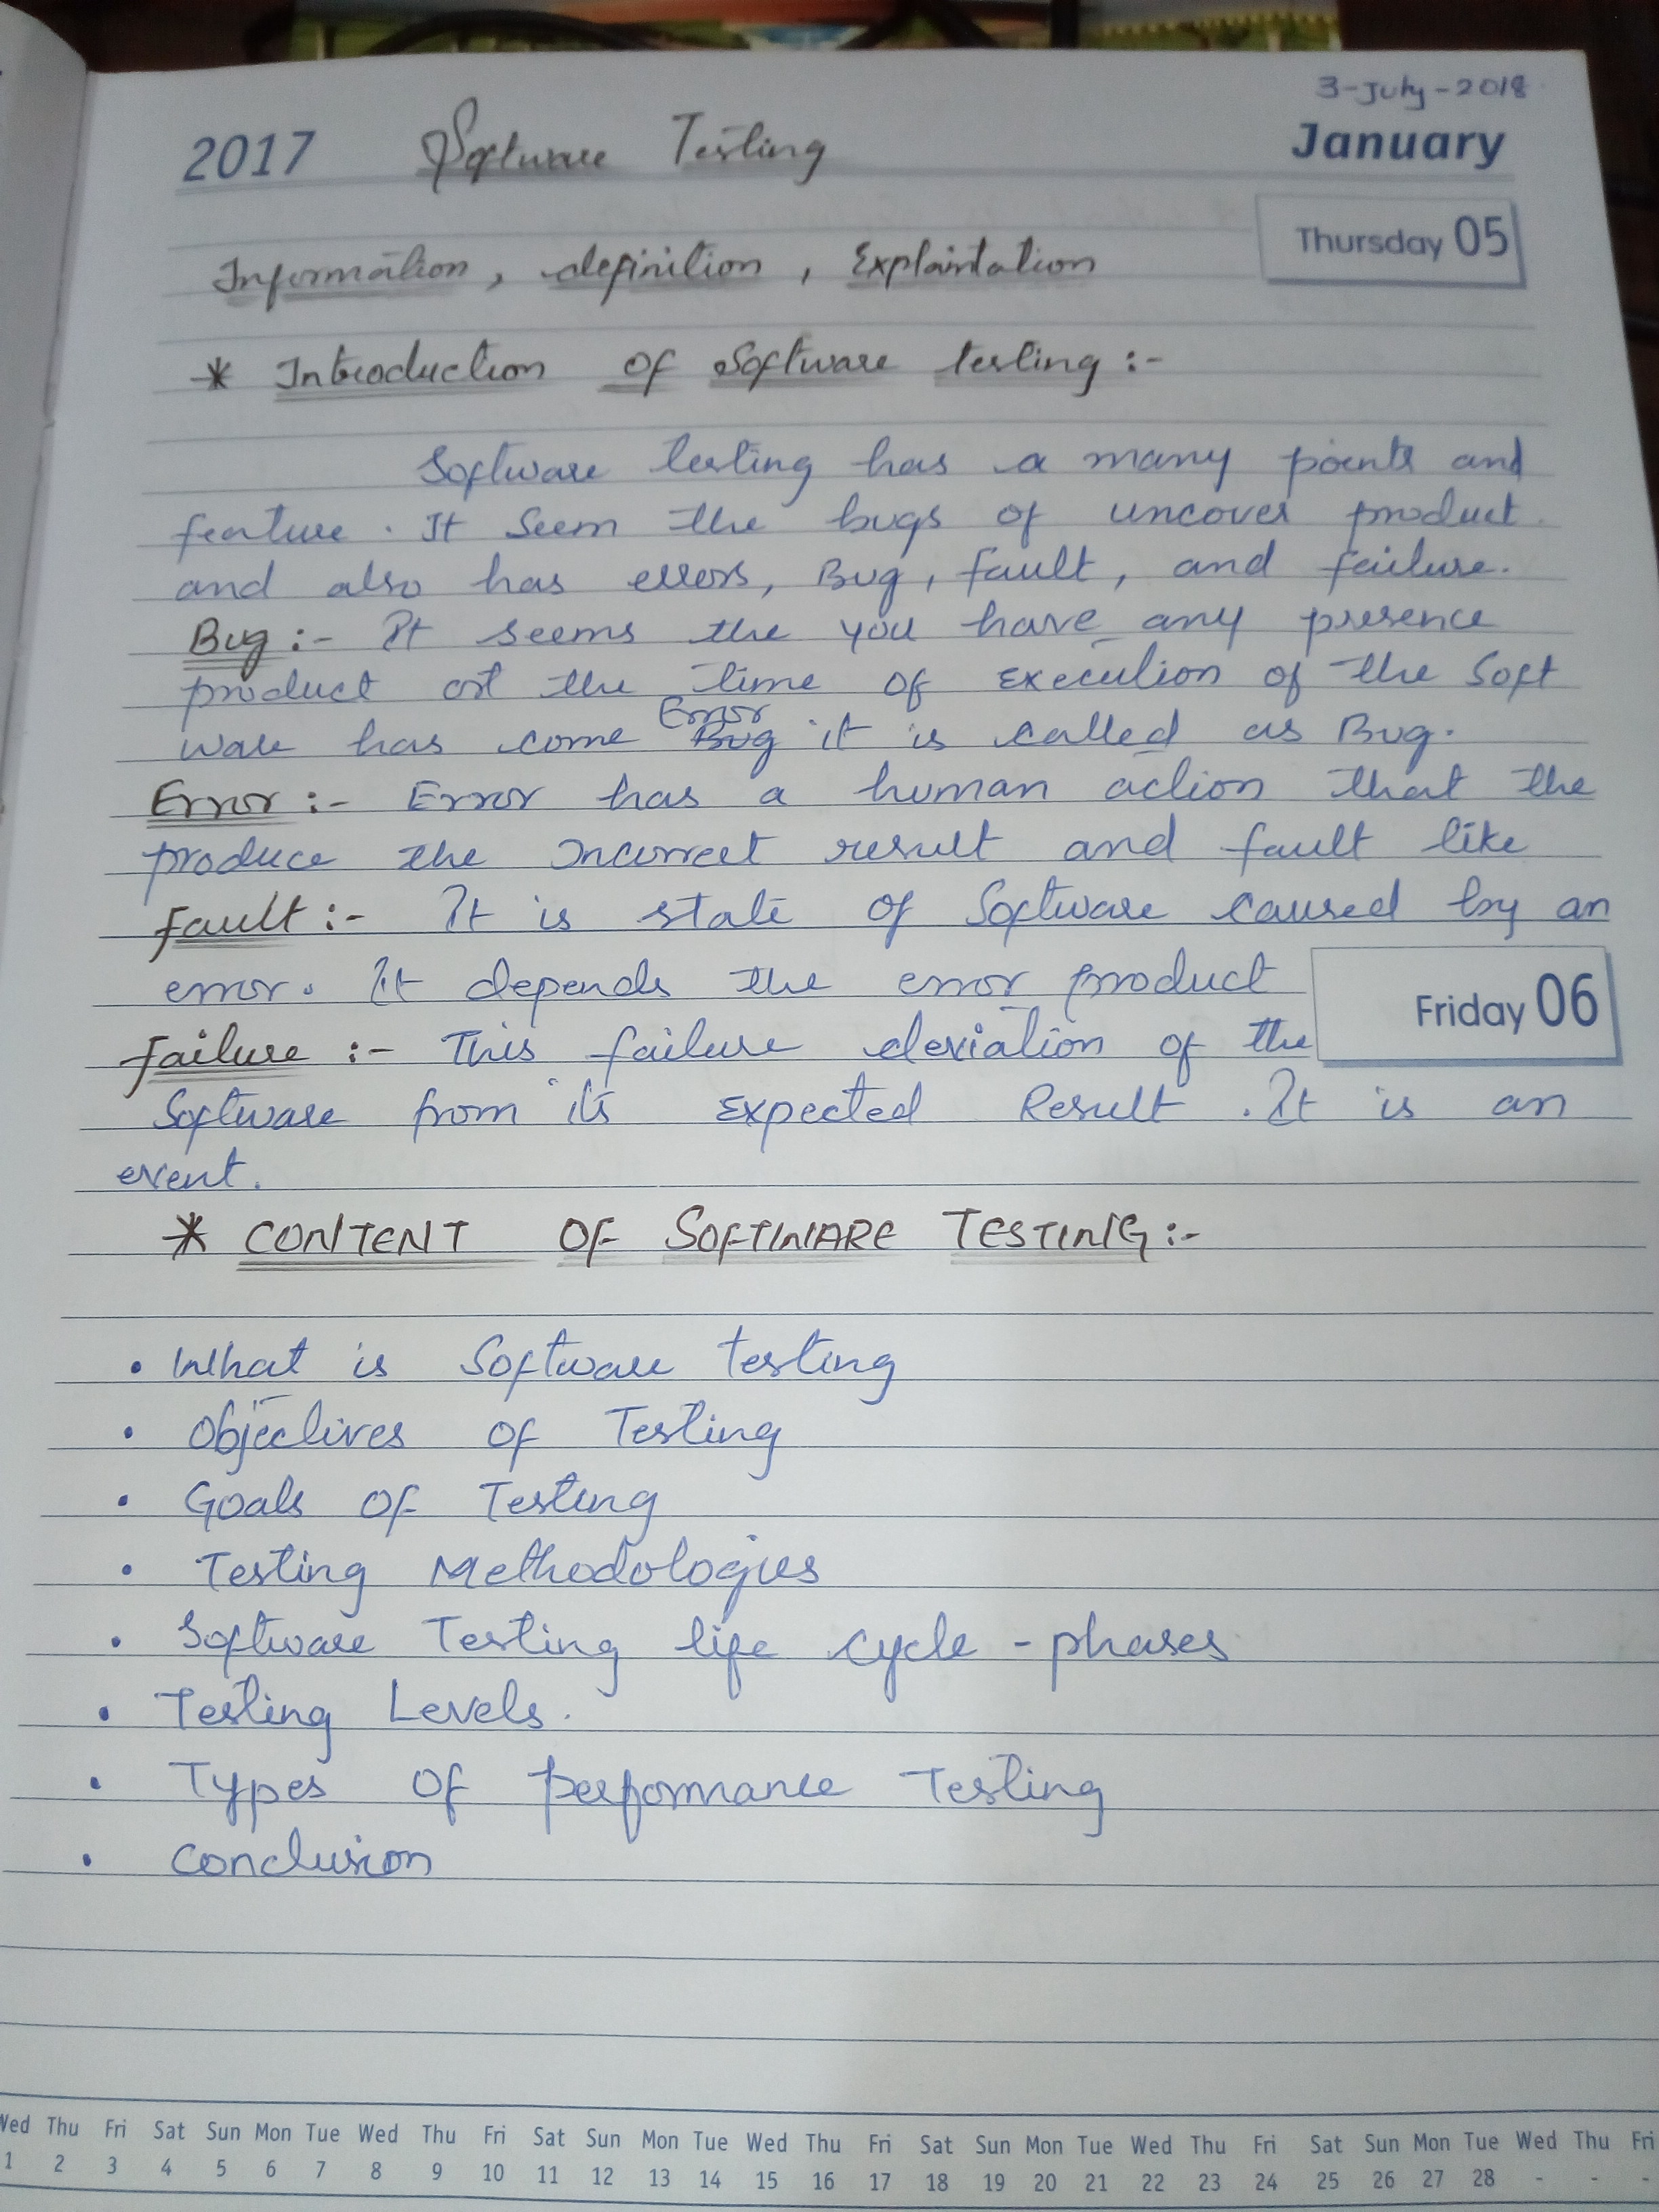 3-July-2018
2017 Software Testing January
Thursday 05
Information, definition, Explaintation
* Introduction of Software testing :-
Software testing has a many points and
feature. It Seem the bugs of uncover product.
and also has errors, Bug, fault, and failure.
Bug :- It seems the you have any presence
product at the time of execution of the Soft
Error
ware has come Bug it is called as Bug.
Error :- Error has a human action that the
produce the incorrect result and fault like
fault :- It is state of Software caused by an
error. It depends the error product
Friday 06
failure :- This failure deviation of the
Software from its expected Result. It is an
event.
* CONTENT OF SOFTWARE TESTING :-
• What is Software testing
• Objectives of Testing
• Goals of Testing
• Testing Methodologies
• Software Testing life cycle - phases
• Testing Levels.
• Types of performance Testing
• Conclusion
Wed Thu Fri Sat Sun Mon Tue Wed Thu Fri Sat Sun Mon Tue Wed Thu Fri Sat Sun Mon Tue Wed Thu Fri Sat Sun Mon Tue Wed Thu Fri
1 2 3 4 5 6 7 8 9 10 11 12 13 14 15 16 17 18 19 20 21 22 23 24 25 26 27 28 - - -